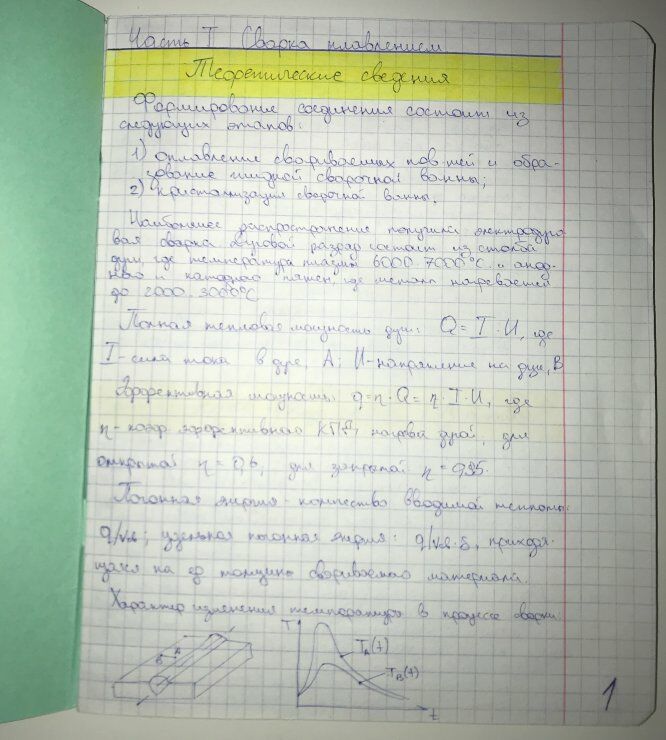 Часть I Сварка плавлением
Теоретические сведения
Формирование соединения состоит из
следующих этапов:
1) оплавление свариваемых пов-тей и обра-
зование жидкой сварочной ванны;
2) кристаллизация сварочной ванны.
Наибольшее распространение получила электродуго
вая сварка. Дуговой разряд состоит из столба
дуги, где температура плазмы 6000..7000°C и анод-
ного и катодного пятен, где металл нагревается
до 2000..3000°C
Полная тепловая мощность дуги: Q = I · U, где
I - сила тока в дуге, А; U - напряжение на дуге, В
Эффективная мощность: q = η · Q = η · I · U, где
η - коэф. эффективного КПД нагрева дугой, для
открытой η = 0,6, для закрытой η = 0,95.
Погонная энергия - количество вводимой теплоты:
q/vсв; удельная погонная энергия: q/vсв·δ, приходя-
щаяся на ед толщины свариваемого материала.
Характер изменения температуры в процессе сварки:
B A
T
T_A(t)
T_B(t)
t
1